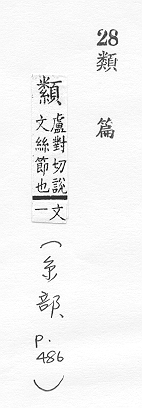 28
類篇
纇
盧對切說
文絲節也
文
一
(糸部
p.
486)